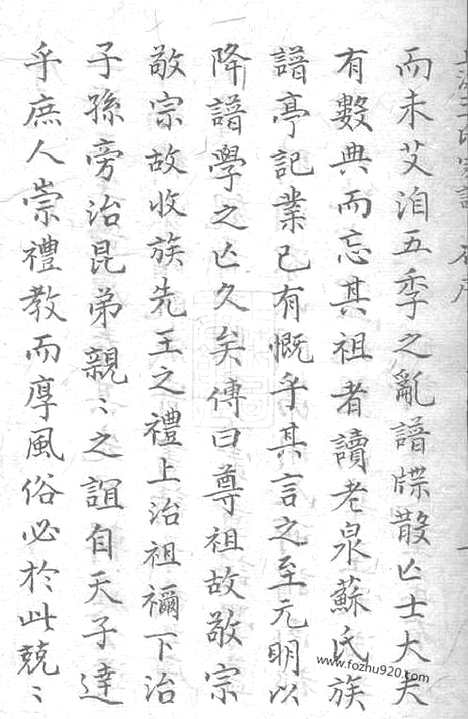 而未艾洎五季之亂譜牒散亾士大夫
有數典而忘其祖者讀老泉蘇氏族
譜亭記業已有慨乎其言之至元明以
降譜學之亾久矣傳曰尊祖故敬宗
敬宗故收族先王之禮上治祖禰下治
子孫旁治昆弟親〻之誼自天子達
乎庶人崇禮教而厚風俗必於此兢〻
www.fozhu920.com